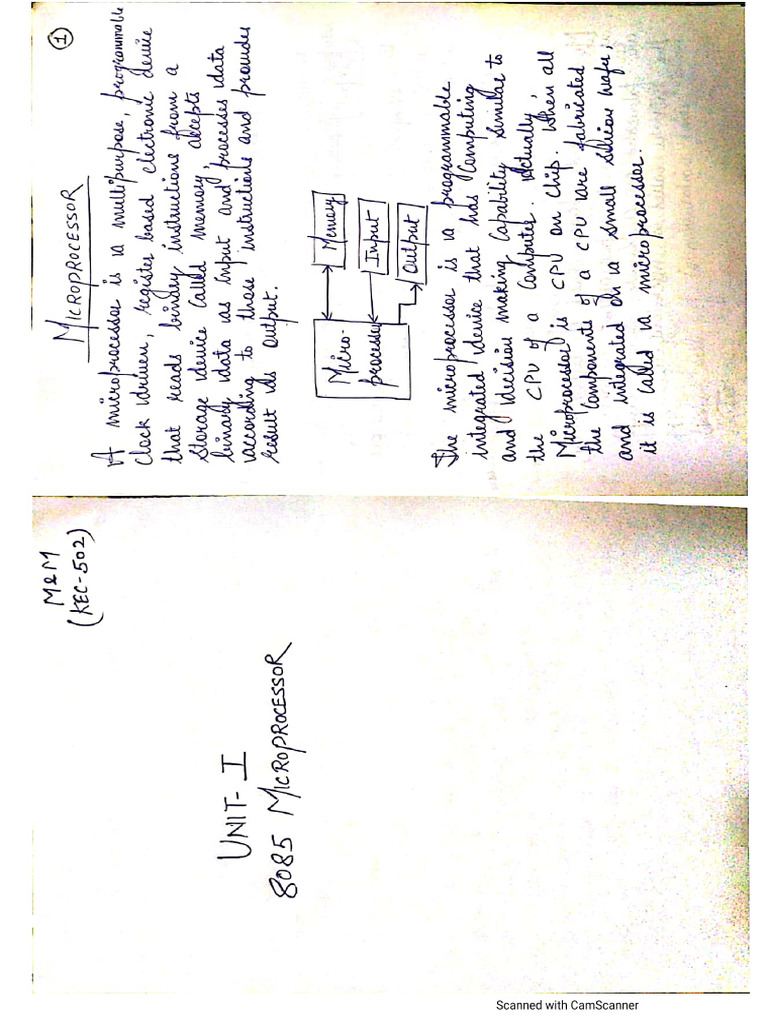 M&M
(KEC-502)
UNIT- I
8085 MICROPROCESSOR
①
MICROPROCESSOR
A microprocessor is a multipurpose, programmable
Clock driven, register based electronic device
that reads binary instructions from a
Storage device called memory, accepts
binary data as input and processes data
according to those instructions and provides
result as output.
Micro-
processor
Memory
Input
Output
The microprocessor is a programmable
integrated device that has Computing
and decision making Capability similar to
the CPU of a Computer. Actually,
Microprocessor is CPU on chip. When all
the Components of a CPU are fabricated
and integrated on a small silicon wafer,
it is called a microprocessor.
Scanned with CamScanner